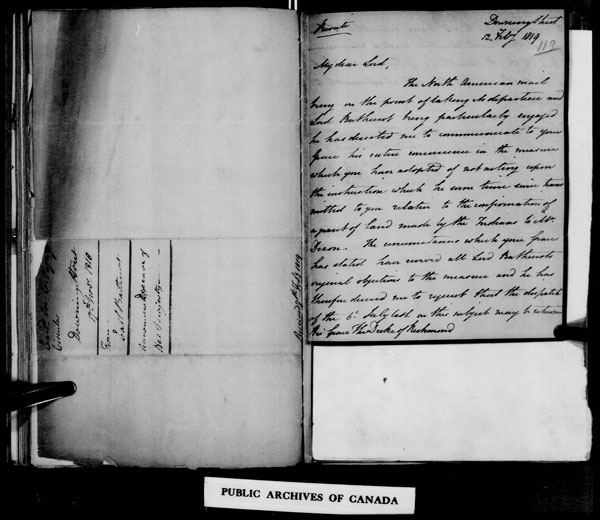 Downing Street
12 Feby 1819
119
Private
My dear Lord,
The North American mail
being on the point of taking its departure and
Lord Bathurst being particularly engaged
he has directed me to communicate to your
Grace his entire concurrence in the measure
which you have adopted of not acting upon
the instruction which he some time since trans
mitted to you relative to the confirmation of
a grant of land made by the Indians to Mr
Dixon. The circumstances which your Grace
has stated have revived all Lord Bathurst's
original objections to the measure and he has
therefore desired me to request that the dispatch
of the 6 July last on this subject may be
His Grace The Duke of Richmond
Circular
Downing Street
17th Novr 1818
From
Earl Bathurst
Announced Decease of
Her Majesty
Received Feby 1819
PUBLIC ARCHIVES OF CANADA